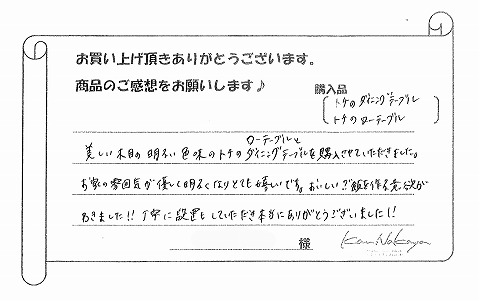 お買い上げ頂きありがとうございます。
商品のご感想をお願いします♪
購入品
トチのダイニングテーブル
トチのローテーブル
ローテーブルと
美しい木目の明るい色味のトチのダイニングテーブルを購入させていただきました。
お家の雰囲気が優しく明るくなりとても嬉しいです。おいしいご飯を作る意欲が
わきました!!丁寧に設置もしていただき本当にありがとうございました!
様